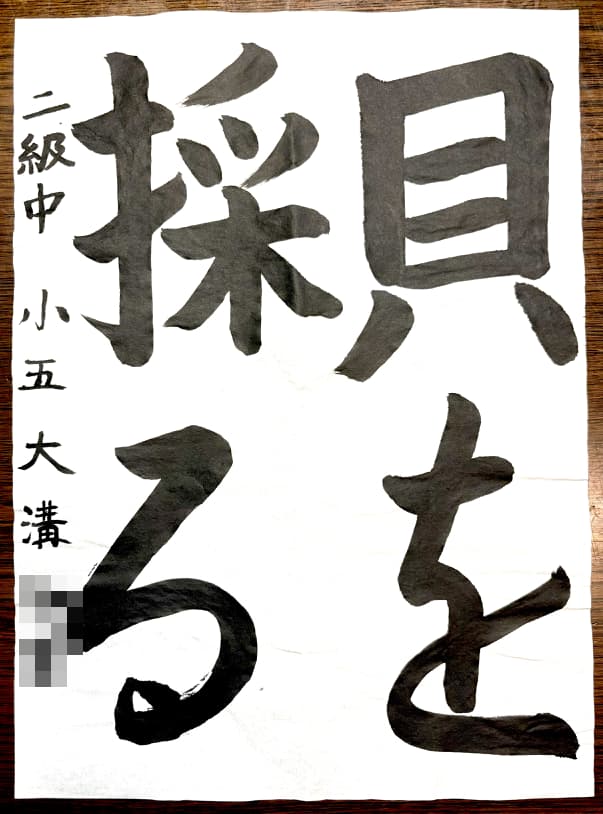 貝を
採る
二級中 小五 大溝